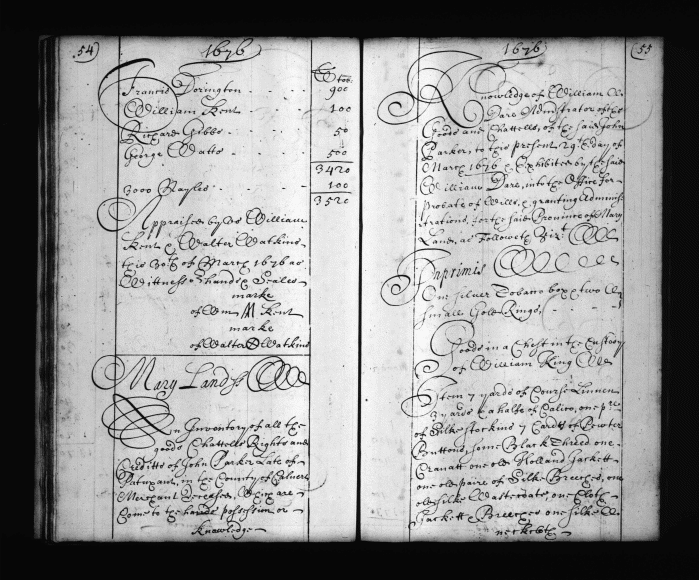 54
1676
Tob:
Francis Dorington 900
William Kent 100
Richard Gibbs 50
George Watts 500
3420
3000 Nayles 100
3520
Appraised by us William
Kent & Walter Watkins
this 30th of March 1676 as
Wittness o hands & Seales
marke
of Wm M Kent
marke
of Walter Watkins
Mary Land ss
An Inventory of all the
goods Chattells Rights and
Creditts of John Parker Late of
Patuxent, in the County of Calvert
Merchant deceased, which are
Come to the hands possession or
knowledge
1676
55
Knowledge of William
Dare Admstrator of the
Goods and Chattells, of the said John
Parker, to this present 29th day of
March 1676 & Exhibited by the said
William Dare, into the Office for
probate of Wills, & granting Adminis-
trations, for the said Province of Mary
Land, as Followeth Vizt
Inprimis
One silver Tobacco box & two
small Gold Rings,
Goods in a Chest in the Custody
of William King
Item 7 yards of Course Linnen
3 yards & a halfe of Calico, one pre
of Silke stockins 7 Cards of Pewter
Buttons, some Black Thred one
Cravatt one old Holland Jackett
one old paire of Silke Breeches, one
old silke Wastcoate, one Cloth
Jackett & Breeches one silke
neckcloth